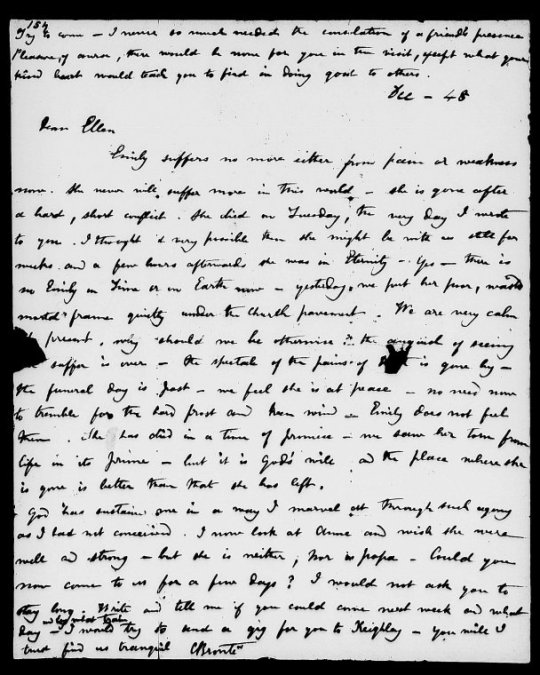 154
Try to come – I never so much needed the consolation of a friend's presence
Pleasure, of course, there would be none for you in the visit, except what your
kind heart would teach you to find in doing good to others.
Dec – 48
Dear Ellen
Emily suffers no more either from pain or weakness
now. She never will suffer more in this world – she is gone after
a hard, short conflict. She died on Tuesday, the very day I wrote
to you. I thought it very possible then she might be with us still for
weeks and a few hours afterwards she was in Eternity – Yes – there is
no Emily in Time or on Earth now – yesterday, we put her poor, wasted
mortal frame quietly under the Church pavement. We are very calm
at present, why should we be otherwise? the anguish of seeing
suffer is over – the spectacle of the pains of is gone by –
the funeral day is past – we feel she is at peace – no need now
to tremble for the hard frost and keen wind – Emily does not feel
them. She has died in a time of promise – we saw her torn from
life in its prime – but it is God's will and the place where she
is gone is better than that she has left.
God has sustained me in a way I marvel at through such agony
as I had not conceived. I now look at Anne and wish she were
well and strong – but she is neither, Nor is papa – Could you
now come to us for a few days? I would not ask you to
stay long. Write and tell me if you could come next week and what
by what train
day – I would try to send a gig for you to Keighley – you will I
trust find us tranquil CBrontë